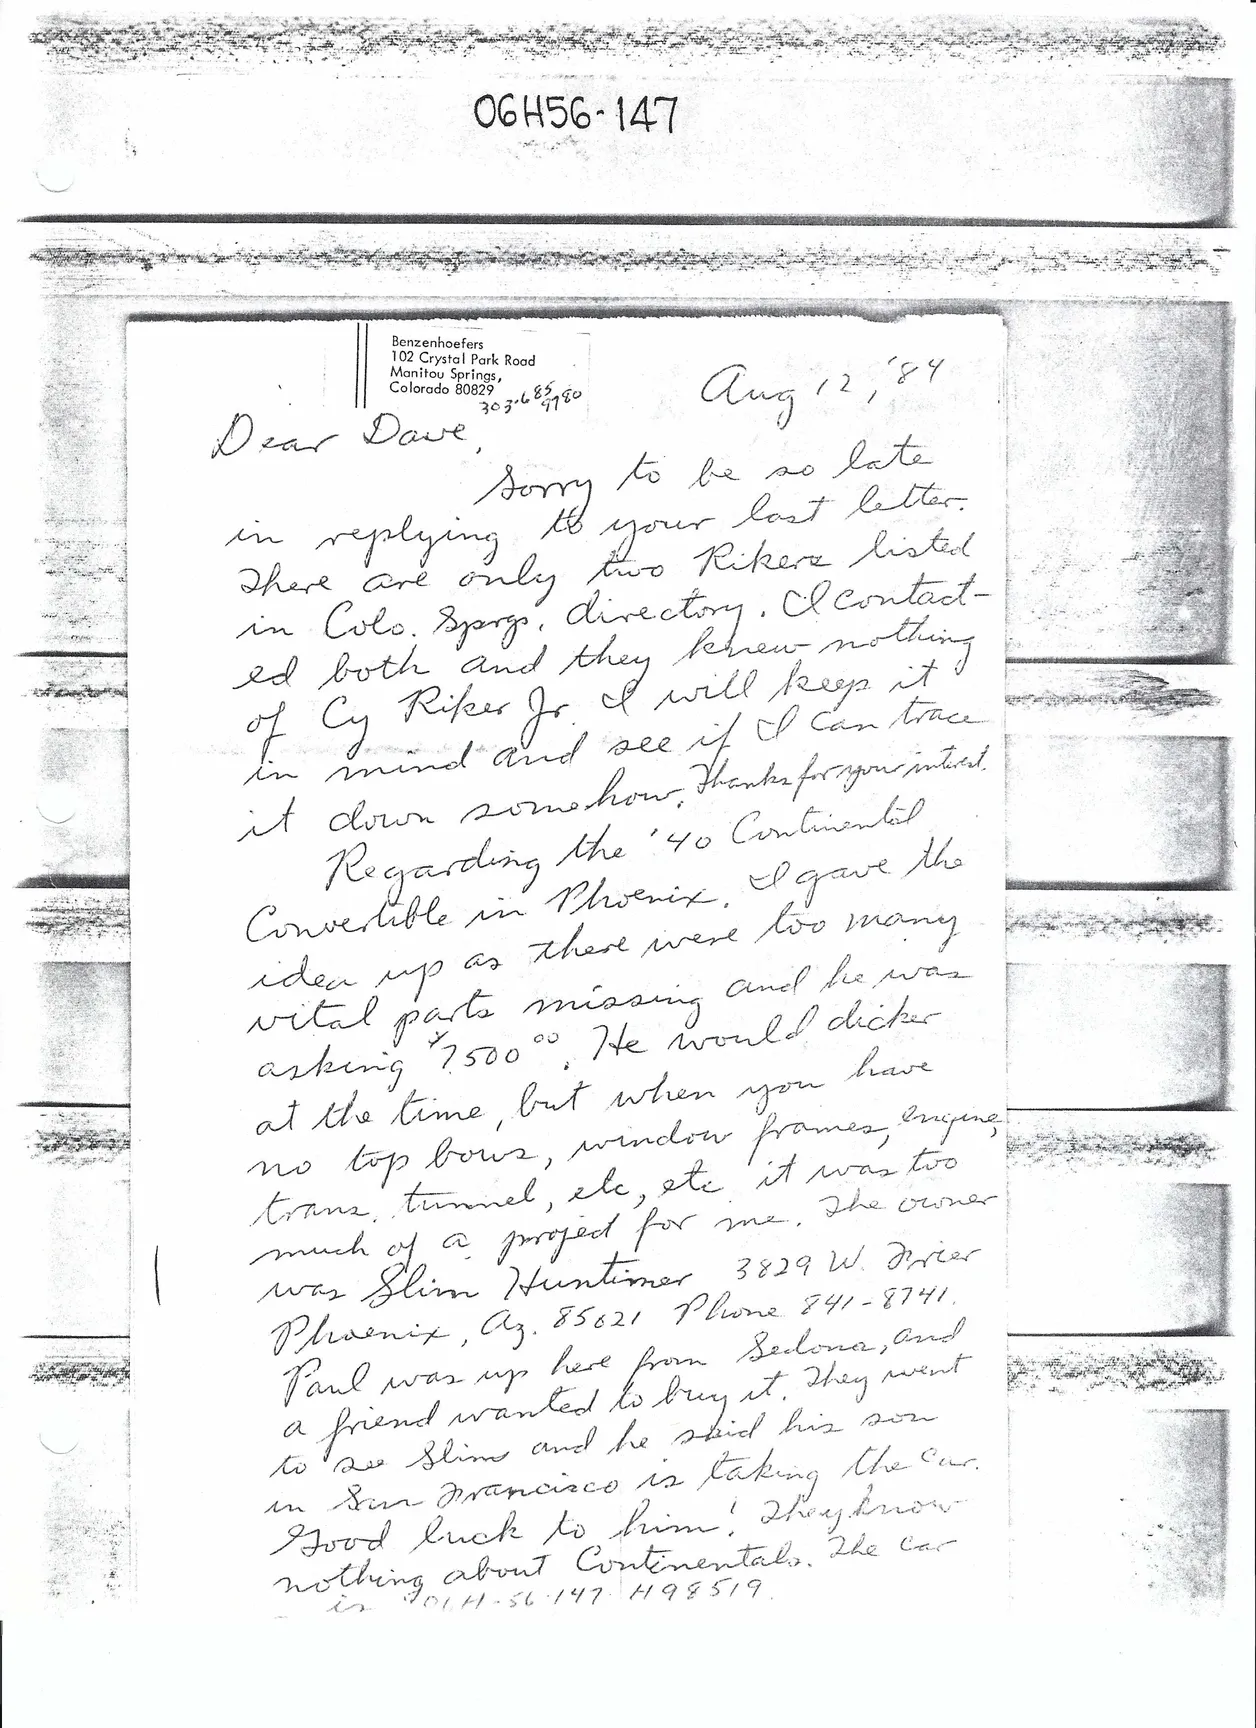 06H56-147
Benzenhoefers
102 Crystal Park Road
Manitou Springs,
Colorado 80829
303-685
9780
Aug 12, '84
Dear Dave,
Sorry to be so late
in replying to your last letter.
There are only two Rikers listed
in Colo. Sprgs. directory. I contact-
ed both and they knew nothing
of Cy Riker Jr. I will keep it
in mind and see if I can trace
it down somehow. Thanks for your interest.
Regarding the '40 Continental
Convertible in Phoenix. I gave the
idea up as there were too many
vital parts missing and he was
asking $7500 00. He would dicker
at the time, but when you have
no top bows, window frames, engine,
trans, tunnel, etc, etc it was too
much of a project for me. The owner
was Slim Huntimer 3829 W. Frier
Phoenix, Az. 85021 Phone 841-8741.
Paul was up here from Sedona, and
a friend wanted to buy it. They went
to see Slim and he said his son
in San Francisco is taking the car.
Good luck to him! They know
nothing about Continentals. The car
is 06H-56-147 H98519.